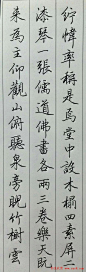 紵幃率稱是焉堂中設木榻四素屏二
漆琴一張儒道佛書各兩三卷樂天既
來為主仰觀山俯聽泉旁睨竹樹雲